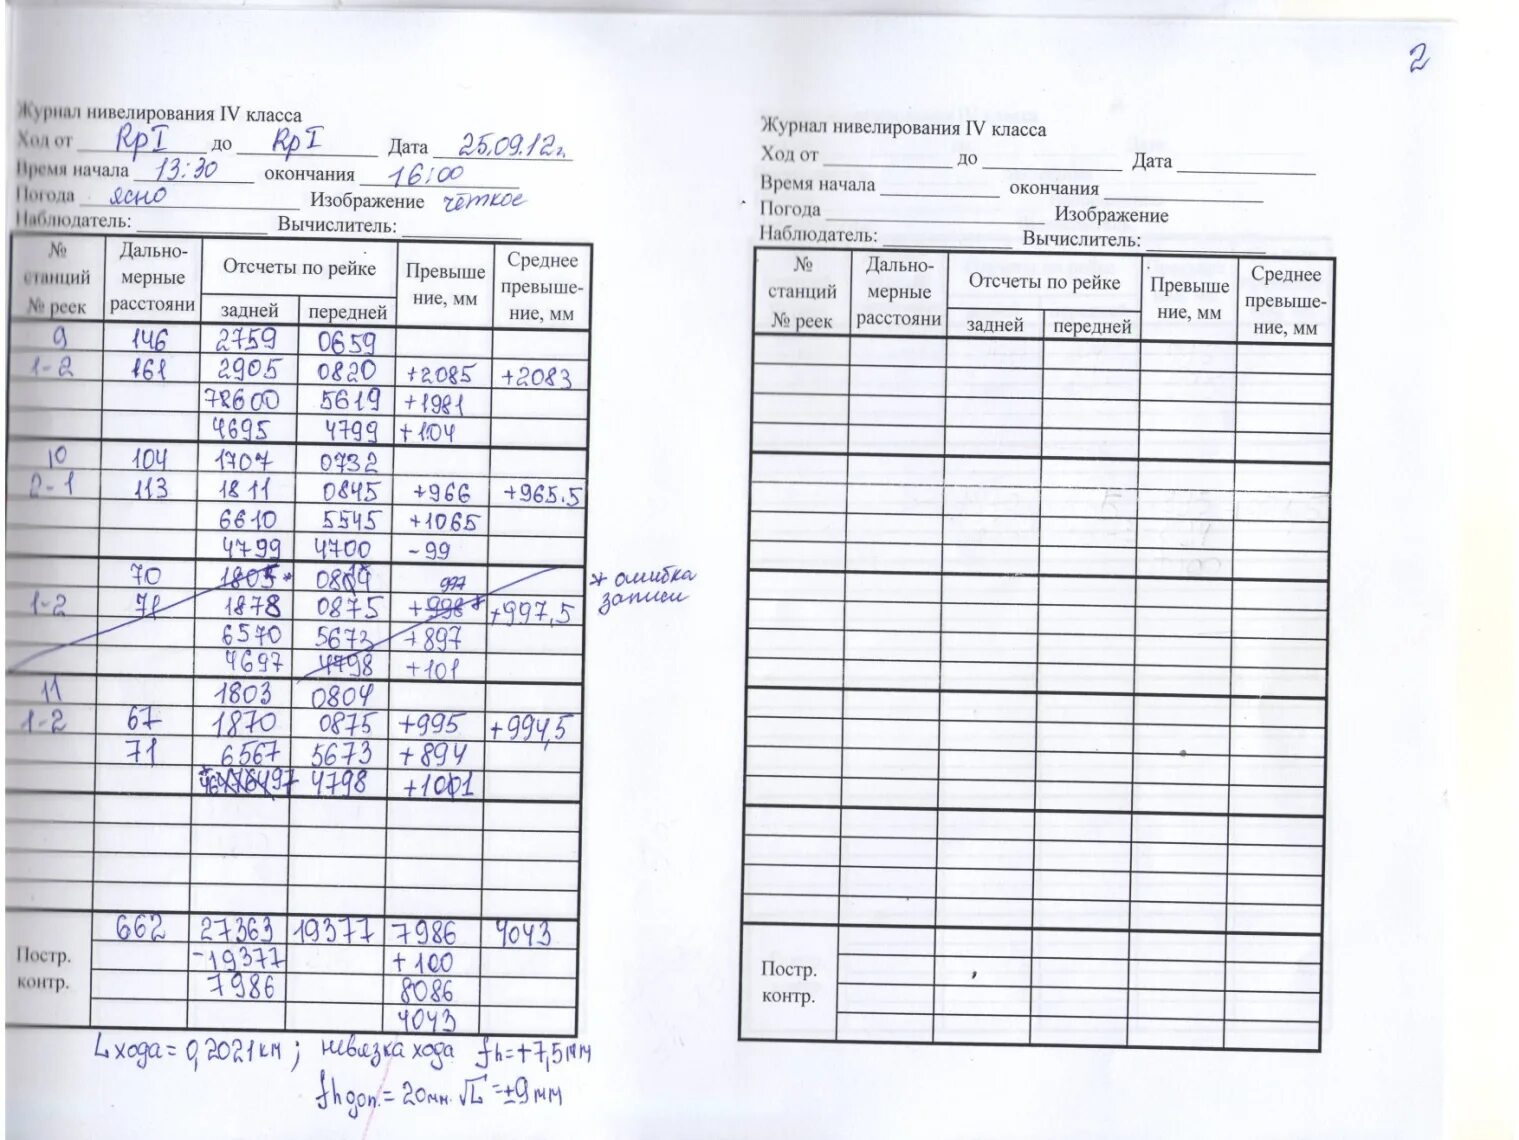 2
Журнал нивелирования IV класса
Ход от Rp I до Rp I Дата 25.09.12г.
Время начала 13:30 окончания 16:00
Погода ясно Изображение чёткое
Наблюдатель: Вычислитель:
№ станций № реек Дально-мерные расстояни Отсчеты по рейке задней передней Превыше ние, мм Среднее превыше-ние, мм
9 146 2759 0659
1-2 161 2905 0820 +2085 +2083
7600 5619 +1981
4695 4799 +104
10 104 1707 0732
2-1 113 1811 0845 +966 +965.5
6610 5545 +1065
4799 4700 -99
70 1805* 997
* ошибка
1-2 71 1878 0875 +998* +997,5
записи
6570 5673 +897
4697 4798 +101
11 1803 0804
1-2 67 1870 0875 +995 +994,5
71 6567 5673 +894
4798 +101
662 27363 19377 7986 4043
Постр. контр. -19377 +100
7986 8086
4043
L хода = 0,2021 км ; невязка хода fh = +7,5 мм
fh доп. = 20мм √L = ±9 мм
Журнал нивелирования IV класса
Ход от до Дата
Время начала окончания
Погода Изображение
Наблюдатель: Вычислитель:
№ станций № реек Дально-мерные расстояни Отсчеты по рейке задней передней Превыше ние, мм Среднее превыше-ние, мм
Постр.
контр.